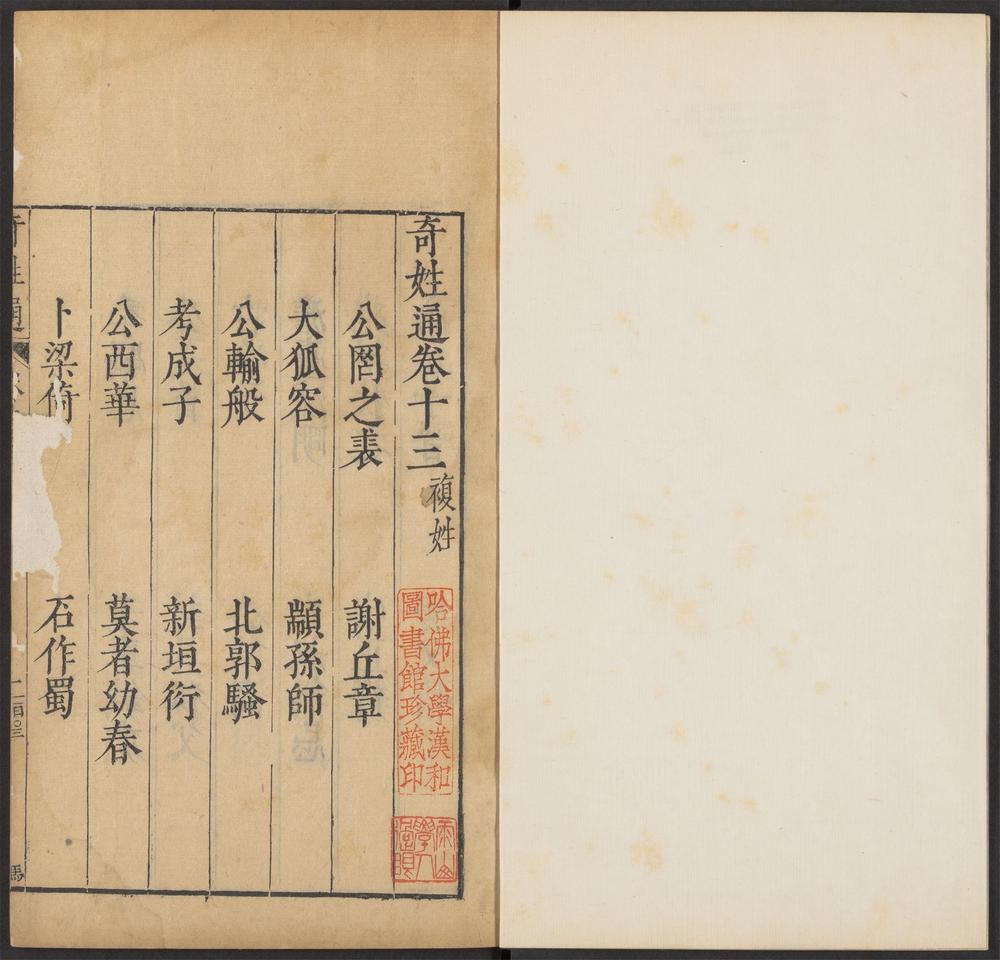 奇姓通卷十三 複姓
公罔之裘 謝丘章
大狐容 顓孫師
公輸般 北郭騷
考成子 新垣衍
公西華 莫者幼春
卜梁倚 石作蜀
奇姓通
哈佛大學漢和
圖書館珍藏印